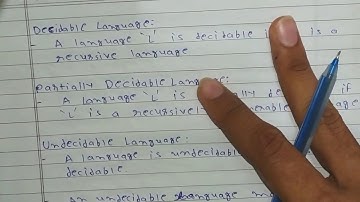 Decidable Language:
- A language 'L' is decidable is a
recursive language
Partially Decidable Language:
- A language 'L' is if
'L' is a recursively
Undecidable Language:
- A language is undecidable
decidable
- An undecidable language